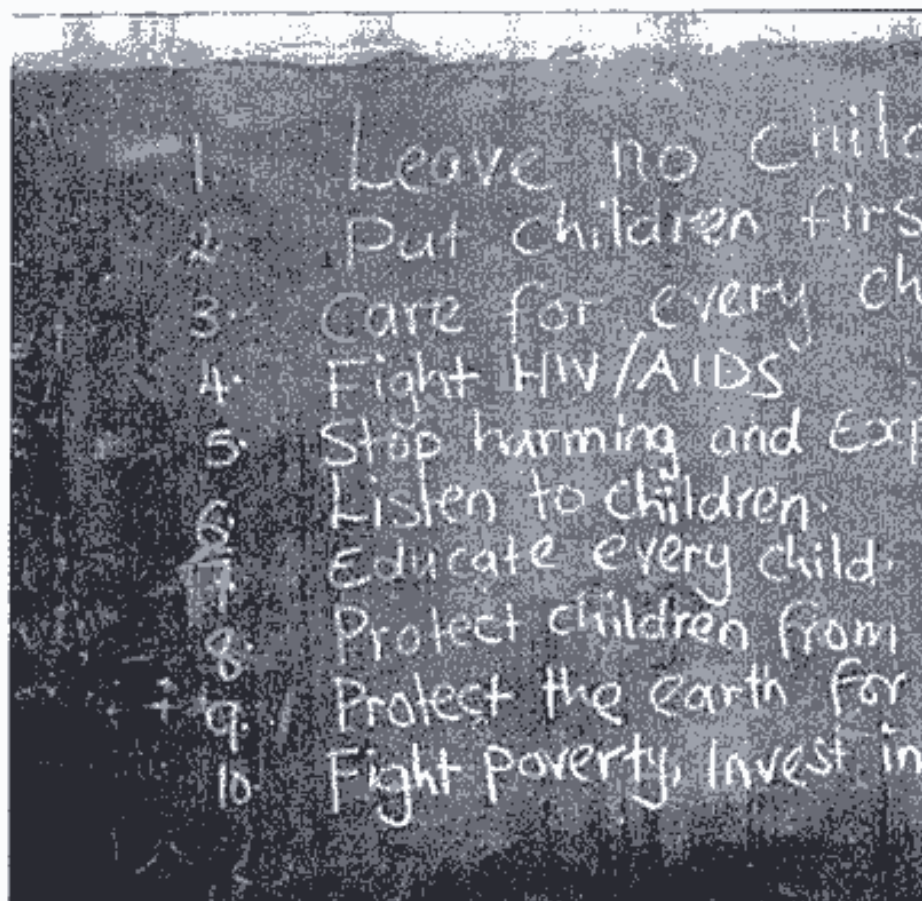 1. Leave no Chil
2. Put children firs
3. Care for every ch
4. Fight HIV/AIDS
5. Stop harming and Exp
6. Listen to children.
7. Educate every child.
8. Protect children from
9. Protect the earth for
10. Fight poverty, Invest in